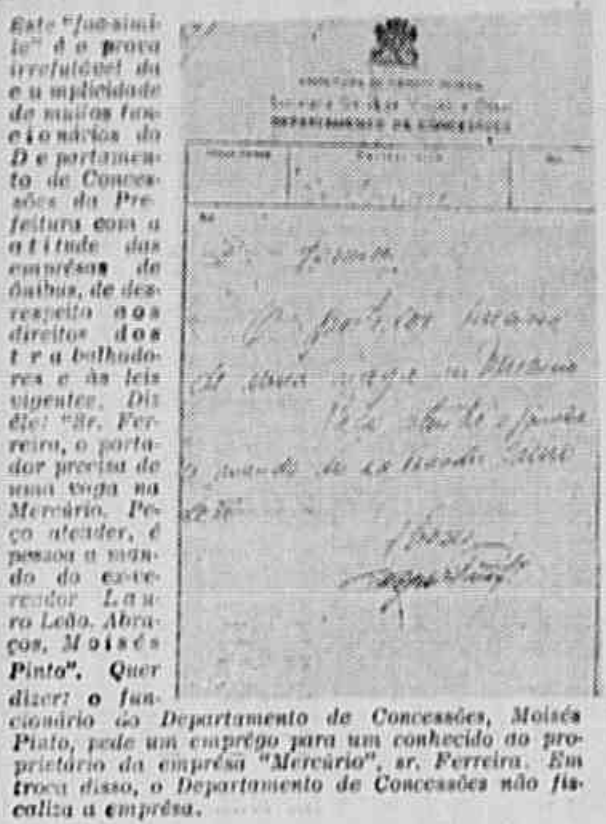 Este "fac-simi-
le" é a prova
irrefutável da
cumplicidade
de muitos fun-
cionários do
Departamen-
to de Conces-
sões da Pre-
feitura com a
atitude das
emprêsas de
ônibus, de des-
respeito aos
direitos dos
trabalhado-
res e às leis
vigentes. Diz
êle: "Sr. Fer-
reira, o porta-
dor precisa de
uma vaga na
Mercúrio. Pe-
ço atender, é
pessoa a man-
do do ex-ve-
reador Lau-
ro Leão. Abra-
ços, Moisés
Pinto". Quer
dizer: o fun-
cionário do Departamento de Concessões, Moisés
Pinto, pede um emprêgo para um conhecido ao pro-
prietário da emprêsa "Mercúrio", sr. Ferreira. Em
troca disso, o Departamento de Concessões não fis-
caliza a emprêsa.
DEPARTAMENTO DE CONCESSÕES
O portador precisa
de uma vaga na Mercurio
Peço atender é pessoa
a mando do ex